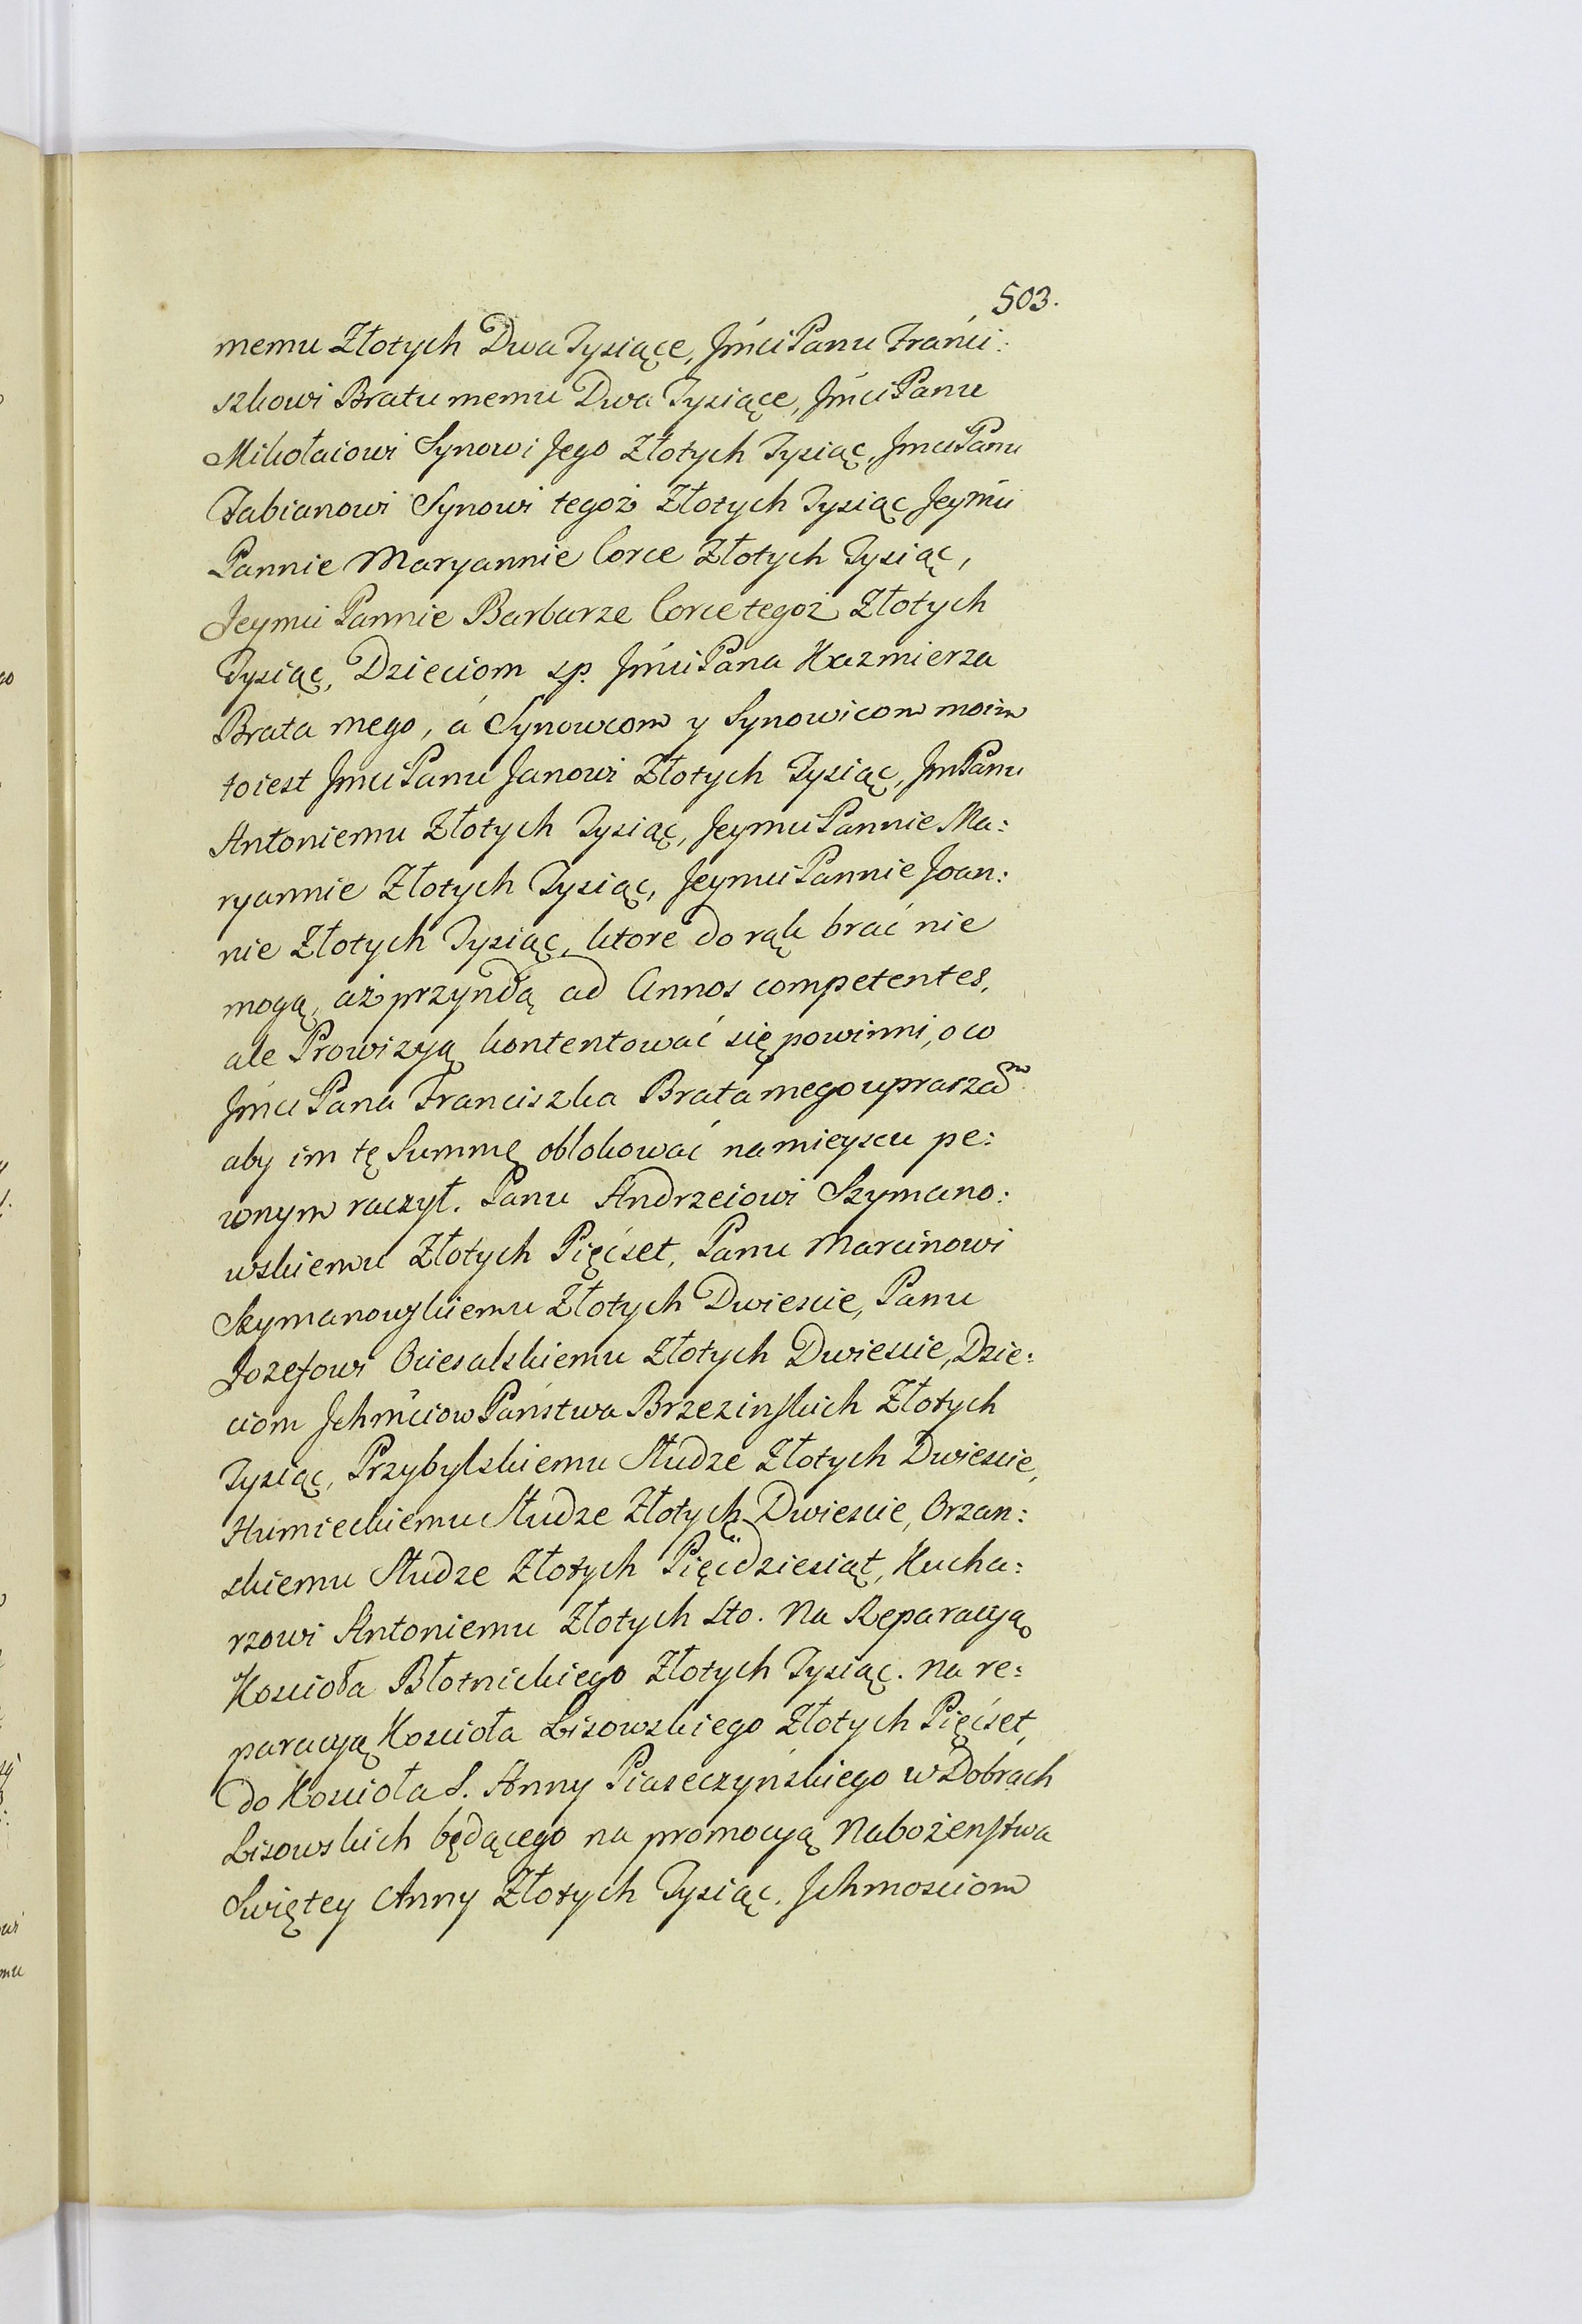 503.
memu Złotych Dwa Tysiące, Jmći Panu Franci:
szkowi Bratu memu Dwa Tysiące, Jmći Panu
Mikołaiowi Synowi Jego Złotych Tysiąc, Jmci Panu
Fabianowi Synowi tegoż Złotych Tysiąc Jeymći
Pannie Maryannie Corce Złotych Tysiąc,
Jeymci Pannie Barbarze Corce tegoż Złotych
Tysiąc, Dzieciom sp. Jmći Pana Kazmierza
Brata mego, á Synowcom y Synowicom moim
toiest Jmci Panu Janowi Złotych Tysiąc, Jm Panu
Antoniemu Złotych Tysiąc, Jeymci Pannie Ma:
ryannie Złotych Tysiąc, Jeymci Pannie Joan:
nie Złotych Tysiąc, ktore do rąk brać nie
mogą, aż przyndą ad Annos competentes,
ale Prowizyą kontentować się powinni, o co
Jmći Pana Franciszka Brata mego upraszam
aby im tę Summę oblokować na mieyscu pe:
wnym raczył. Panu Andrzeiowi Szymano:
wskiemu Złotych Pięćset, Panu Marcinowi
Szymanowskiemu Złotych Dwiescie, Panu
Jozefowi Ociesalskiemu Złotych Dwiescie, Dzie:
ciom Jchmćiow Państwa Brzezinskich Złotych
Tysiąc, Przybylskiemu Słudze Złotych Dwiescie,
Humieckiemu Słudze Złotych Dwiescie, Orzan:
skiemu Słudze Złotych Pięćdziesiąt, Kucha:
rzowi Antoniemu Złotych Sto. Na Reparacyą
Kościoła Błotnickiego Złotych Tysiąc. na re:
paracyą Kościoła Lisowskiego Złotych Pięćset,
do Kościoła S. Anny Piaseczyńskiego w Dobrach
Lisowskich będącego na promocyą Nabożenstwa
Swiętey Anny Złotych Tysiąc. Jchmosciom